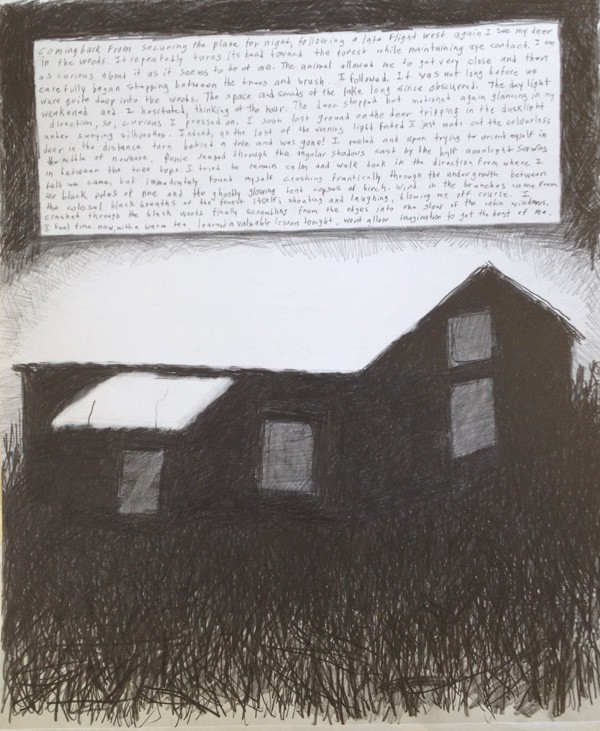 Coming back from securing the plane for night, following a late flight west again I see my deer
in the woods. It repeatedly turns its head toward the forest while maintaining eye contact. I am
as curious about it as it seems to be of me. The animal allowed me to get very close and then
carefully began stepping between the trees and brush. I followed. It was not long before we
were quite deep into the woods. The space and sounds of the lake long since obscured. The day light
weakened and I hesitated, thinking of the hour. The deer stopped but motioned again glancing in my
direction, so, curious I pressed on. I soon lost ground on the deer tripping in the dusklight
under swaying silhouettes. Indeed, as the last of the evening light faded I just made out the colourless
deer in the distance turn behind a tree and was gone! I reeled and spun trying to orient myself in
the middle of nowhere. Panic seeped through the angular shadows cast by the half moonlight
in between the tree tops. I tried to remain calm and walk back in the direction from where I
felt we came, but immediately found myself crashing frantically through the undergrowth between
the black poles of pine and the ghostly glowing bent of birch. Wind in the branches came from
the colossal black breaths of the forest itself, shouting and laughing, blowing me off course. I
crashed through the black woods finally scrambling from the edges into the glow of the cabin windows.
I feel fine now, with a warm tea. learned a valuable lesson tonight, wont allow imagination to get the best of me.